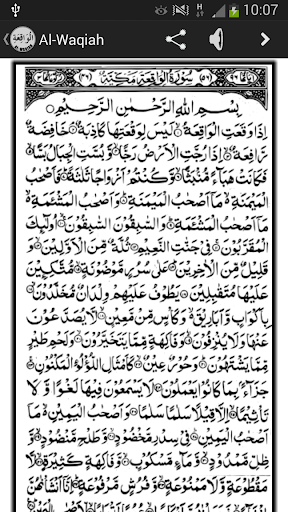 10:07
Al-Waqiah
سُوۡرَةُ الۡوَاقِعَةِ مَكِّيَّةٌ
بِسۡمِ اللّٰهِ الرَّحۡمٰنِ الرَّحِيۡمِ
اِذَا وَقَعَتِ الۡوَاقِعَةُ لَيۡسَ لِوَقۡعَتِهَا كَاذِبَةٌ خَافِضَةٌ
رَّافِعَةٌ اِذَا رُجَّتِ الۡاَرۡضُ رَجًّا وَّبُسَّتِ الۡجِبَالُ بَسًّا
فَكَانَتۡ هَبَآءً مُّنۡۢبَثًّا وَّكُنۡتُمۡ اَزۡوَاجًا ثَلٰثَةً فَاَصۡحٰبُ
الۡمَيۡمَنَةِ مَاۤ اَصۡحٰبُ الۡمَيۡمَنَةِ وَاَصۡحٰبُ الۡمَشۡـَٔمَةِ
مَاۤ اَصۡحٰبُ الۡمَشۡـَٔمَةِ وَالسّٰبِقُوۡنَ السّٰبِقُوۡنَ اُولٰٓئِكَ
الۡمُقَرَّبُوۡنَ فِىۡ جَنّٰتِ النَّعِيۡمِ ثُلَّةٌ مِّنَ الۡاَوَّلِيۡنَ وَ
قَلِيۡلٌ مِّنَ الۡاٰخِرِيۡنَ عَلٰى سُرُرٍ مَّوۡضُوۡنَةٍ مُّتَّكِـِٕيۡنَ
عَلَيۡهَا مُتَقٰبِلِيۡنَ يَطُوۡفُ عَلَيۡهِمۡ وِلۡدَانٌ مُّخَلَّدُوۡنَ
بِاَكۡوَابٍ وَّاَبَارِيۡقَ وَكَاۡسٍ مِّنۡ مَّعِيۡنٍ لَّا يُصَدَّعُوۡنَ
عَنۡهَا وَلَا يُنۡزِفُوۡنَ وَفَاكِهَةٍ مِّمَّا يَتَخَيَّرُوۡنَ وَلَحۡمِ طَيۡرٍ
مِّمَّا يَشۡتَهُوۡنَ وَحُوۡرٌ عِيۡنٌ كَاَمۡثَالِ اللُّؤۡلُؤِ الۡمَكۡنُوۡنِ
جَزَآءًۢ بِمَا كَانُوۡا يَعۡمَلُوۡنَ لَا يَسۡمَعُوۡنَ فِيۡهَا لَغۡوًا وَّ لَا
تَاۡثِيۡمًا اِلَّا قِيۡلًا سَلٰمًا سَلٰمًا وَاَصۡحٰبُ الۡيَمِيۡنِ مَاۤ
اَصۡحٰبُ الۡيَمِيۡنِ فِىۡ سِدۡرٍ مَّخۡضُوۡدٍ وَّطَلۡحٍ مَّنۡضُوۡدٍ وَّ
ظِلٍّ مَّمۡدُوۡدٍ وَّمَآءٍ مَّسۡكُوۡبٍ وَّفَاكِهَةٍ كَثِيۡرَةٍ لَّا
مَقۡطُوۡعَةٍ وَّلَا مَمۡنُوۡعَةٍ وَّفُرُشٍ مَّرۡفُوۡعَةٍ اِنَّاۤ اَنۡشَاۡنٰهُنَّ